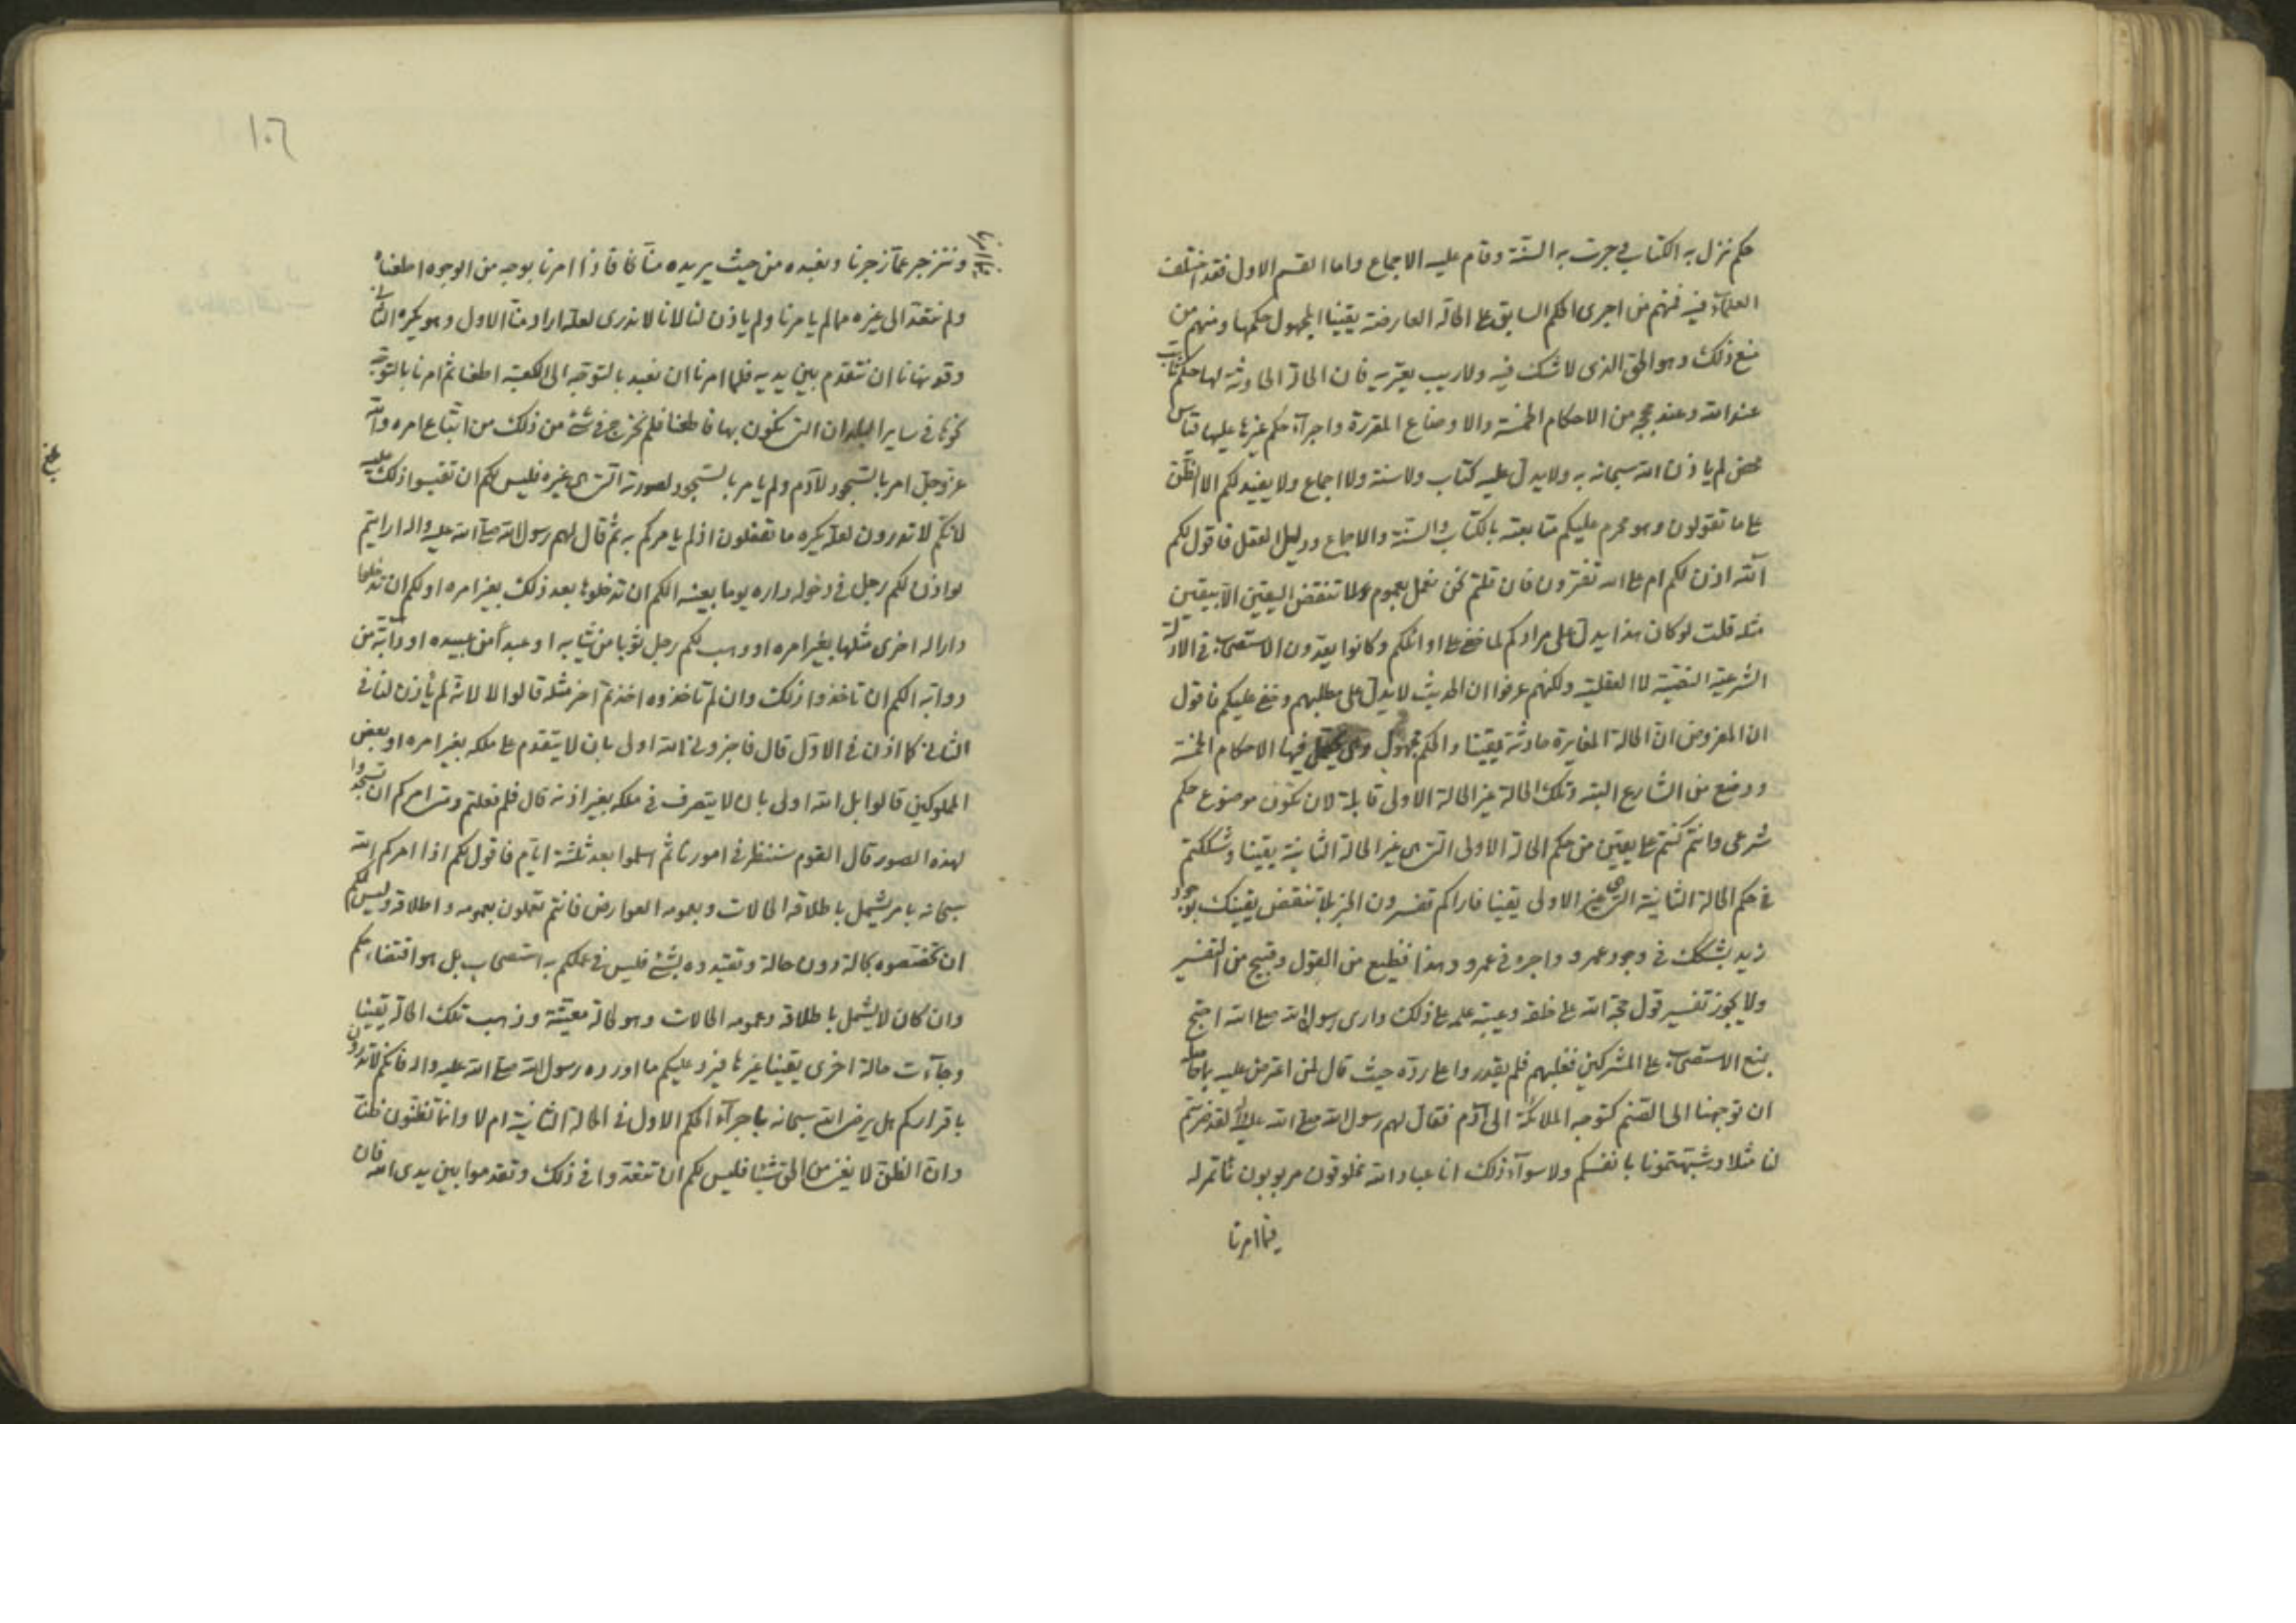 حكم نزل به الكتاب وجرت به السنّة وقام عليه الاجماع واما القسم الاول فقد اختلف
العلمآء فيه فمنهم من اجرى الحكم السابق على الحالة العارضة يقينا المجهول حكمها ومنهم من
منع ذلك وهو الحق الذى لا شك فيه ولا ريب يعتريه فان الحالة الحادثة لها حكم ثابت
عند الله وعند حججه من الاحكام الخمسة والاوضاع المقررة واجرآء حكم غيرها عليها قياس
محض لم ياذن الله سبحانه به ولا يدل عليه كتاب ولا سنة ولا اجماع ولا يفيد لكم الا الظن
على ما تقولون وهو محرم عليكم متابعته بالكتاب والسنّة والاجماع ودليل العقل فاقول لكم
آلله اذن لكم ام على الله تفترون فان قلتم نحن نعمل بعموم ولا تنقض اليقين الا بيقين
مثله قلت لو كان هذا يدل على مرادكم لما خفى على اوائلكم وكانوا يعدون الاستصحاب فى الادلة
الشرعية النصّيّة لا العقلية ولكنهم عرفوا ان الحديث لا يدل على مطلبهم وخفى عليكم فاقول
ان المفروض ان الحالة المغايرة حادثة يقينا والحكم مجهول فيها الاحكام الخمسة
ووضع من الشارع البتة وتلك الحالة غير الحالة الاولى قابلة لان تكون موضوع حكم
شرعى وانتم كنتم على يقين من حكم الحالة الاولى التى هى غير الحالة الثانية يقينا وشككتم
فى حكم الحالة الثانية التى هى غير الاولى يقينا فاراكم تفسرون الخبر لا تنقض يقينك بوجود
زيد بشكك فى وجود عمرو واجره فى عمرو وهذا فظيع من القول وقبيح من التفسير
ولا يجوز تفسير قول حجة الله على خلقه وعيبة علمه على ذلك وارى رسول الله صلى الله احتج
بمنع الاستصحاب على المشركين فغلبهم فلم يقدروا على ردّه حيث قال لمن اعترض عليه
ان توجهنا الى الصّنم كتوجه الملائكة الى آدم فقال لهم رسول الله صلى الله عليه واله لقد ضربتم
لنا مثلا وشبّهتمونا بانفسكم ولا سوآء ذلك انا عباد الله مخلوقون مربوبون ناتمر له
فيما امرنا
١٠٦
فيما امرنا
وننزجر عمّا زجرنا ونعبده من حيث يريده منّا فاذا امرنا بوجه من الوجوه اطعناه
ولم نتعد الى غيره مما لم يامرنا ولم ياذن لنا لانا لا ندرى لعلّه اراد منّا الاول وهو يكره الثانى
وقد نهانا ان نتقدم بين يديه فلما امرنا ان نعبد بالتوجه الى الكعبة اطعنا ثم امرنا بالتوجه
نحوها فى ساير البلدان التى نكون بها فاطعنا فلم نخرج فى شئ من ذلك من اتّباع امره والله
عزوجل امر بالسّجود لآدم ولم يامر بالسّجود لصورته التى هى غيره فليس لكم ان تقيسوا ذلك عليه
لانّكم لا تدرون لعلّه يكره ما تفعلون اذ لم يامركم به ثم قال لهم رسول الله صلى الله عليه واله ارايتم
لو اذن لكم رجل فى دخول داره يوما بعينه الكم ان تدخلوها بعد ذلك بغير امره اولكم ان تدخلوا
دارا له اخرى مثلها بغير امره او وهب لكم رجل ثوبا من ثيابه او عبداً من عبيده او دآبّة من
دوابّه الكم ان تاخذوا ذلك وان لم تاخذوه اخذتم آخر مثله قالوا لا لانّه لم ياذن لنا فى
الثانى كما اذن فى الاوّل قال فاخبرونى الله اولى بان لا يتقدم على ملكه بغير امره او بعض
المملوكين قالوا بل الله اولى بان لا يتصرف فى ملكه بغير اذنه قال فلم فعلتم ومتى امركم ان تسجدوا
لهذه الصور قال القوم سننظر فى امورنا ثم اسلموا بعد ثلثة ايّام فاقول لكم اذا امركم الله
سبحانه بامر يشمل باطلاقه الحالات وبعمومه العوارض فانتم تعملون بعمومه واطلاقه وليس لكم
ان تخصّصوه بحالة دون حالة وتقيّدوه بشئ فليس فى عملكم به استصحاب بل هو اقتضاء الحكم
وان كان لا يشمل باطلاقه وعمومه الحالات وهو لحالة معيّنة وذهب تلك الحالة يقينا
وجآءت حالة اخرى يقينا غيرها فيرد عليكم ما اورده رسول الله صلى الله عليه واله فانكم لا تدرون
باقراركم هل يرضى الله سبحانه باجرآء الحكم الاول فى الحالة الثانية ام لا وانما تظنّون ظنّا
وانّ الظنّ لا يغنى من الحق شيئا فليس لكم ان تتعدوا فى ذلك وتقدموا بين يدى الله فان